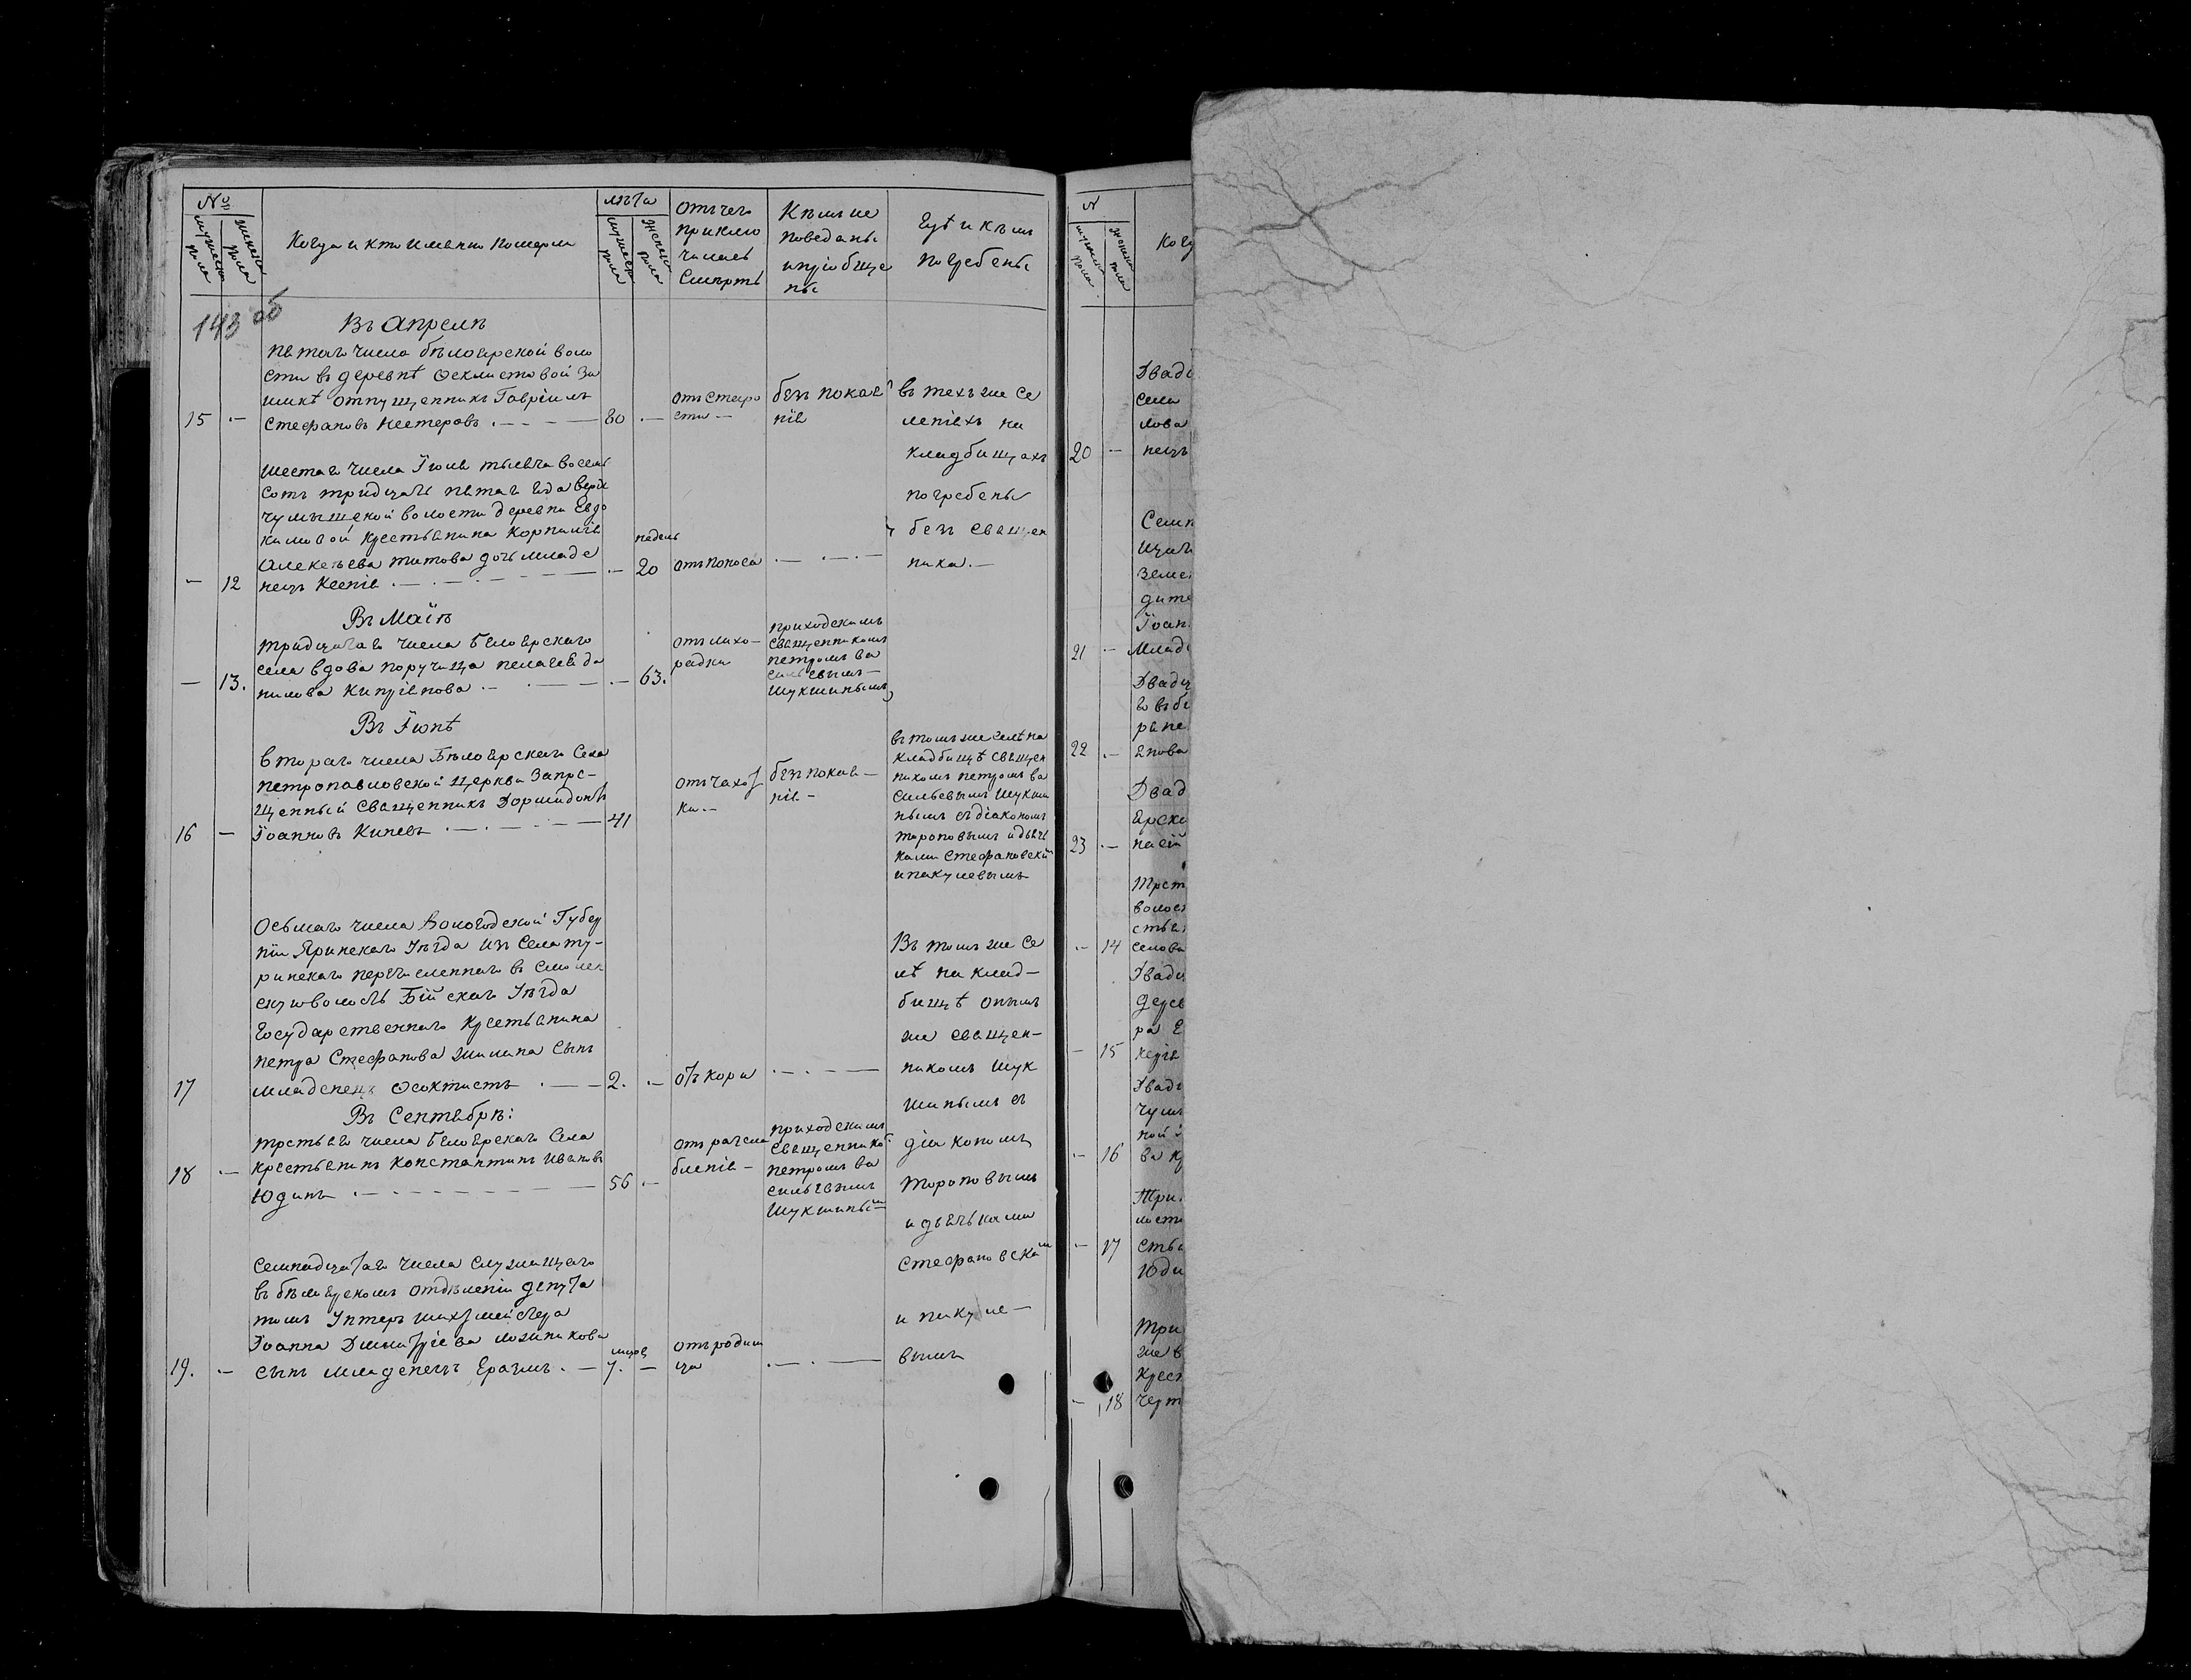 №
мужеска пола
женска пола
Когда и кто именно померли
лѣта
мужеска пола
женска пола
Отъ чего
приклю
чилась
смерть
Кѣмъ ис
поведаны
и пріобще
ны
Гдѣ и кѣмъ
погребены
143 об
Въ Апрелѣ
пятаго числа бѣлоярской воло
сти въ деревнѣ Феклистовой За
имкѣ отпущенникъ Гавріилъ
15 — Стефановъ Нестеровъ — 80 —
отъ старо
сти —
безъ покая
нія
въ техъ же се
леніяхъ на
кладбищахъ
погребены
безъ священ
ника. —
шестаго числа Іюля тысяча восемь
сотъ тридцать пятаго года верх
чумышской волости деревни Евдо
кимовой крестьянина Корнилія
Алексѣева Титова дочь младе
— 12 нецъ Ксенія — — недель 20 отъ поноса —
Въ Маіѣ
тридцатаго числа Бѣлоярскаго
села вдова поручица пелагея да
— 13. нилова Кипріянова — — 63.
отъ лихо—
радки
приходскимъ
священникомъ
петромъ ва
сильевымъ—
Шукшинымъ
Въ Іюнѣ
втораго числа Бѣлоярскаго Села
петропавловской церкви Запре—
щенный священникъ Дормидонтъ
16 — Іоанновъ Киневъ — 41
отъ чахот
ки. —
безъ покая—
нія —
въ томъ же селѣ на
кладбищѣ священ
никомъ петромъ ва
сильевымъ Шукши
нымъ съ діакономъ
тороповымъ и дьяч
ками Стефановски
и пакулевымъ
Осьмаго числа Вологодской Губер
ніи Яринскаго Уѣзда изъ Села ту—
ринскаго перечисленнаго въ Смолен
скую волость Бійскаго Уѣзда
государственнаго крестьянина
петра Стефанова Жилина сынъ
17 младенецъ Феоктистъ — 2. — отъ кори —
Въ томъ же се
лѣ на клад—
бищѣ онымъ
же священ—
никомъ Шук
шинымъ съ
діакономъ
тороповымъ
и дьячьками
Стефановски
и пакуле—
вымъ
Въ Сентябрѣ:
третьяго числа Бѣлоярскаго Села
18 — крестьянинъ Константинъ Ивановъ
Юдинъ — 56 —
отъ разсла
бленія —
приходскимъ
священнико
петромъ ва
сильевымъ
Шукшины
семнадцатаго числа служащаго
въ бѣлоярскомъ отдѣленіи депута
томъ Унтеръ шихтмейстера
Іоанна Дмитріева ложникова
19. — сынъ младенецъ Еразмъ. — 7. —
отъ родим
ца —
№
мужеска пола
женска пола
Когд
Двадц
села
лова
20 — нецъ
Семн
Земе
дите
Іоан
21 — Млад
Двадц
22 — янова
Двад
ярска
23 —
Трет
волос
ствѣ
— 14 селова
Двадц
дерев
ра Е
— 15
Двадц
чумы
ной
— 16 ва кр
Три
лости
— 17 стья
Юди
Три
же в
крес
— 18 черт